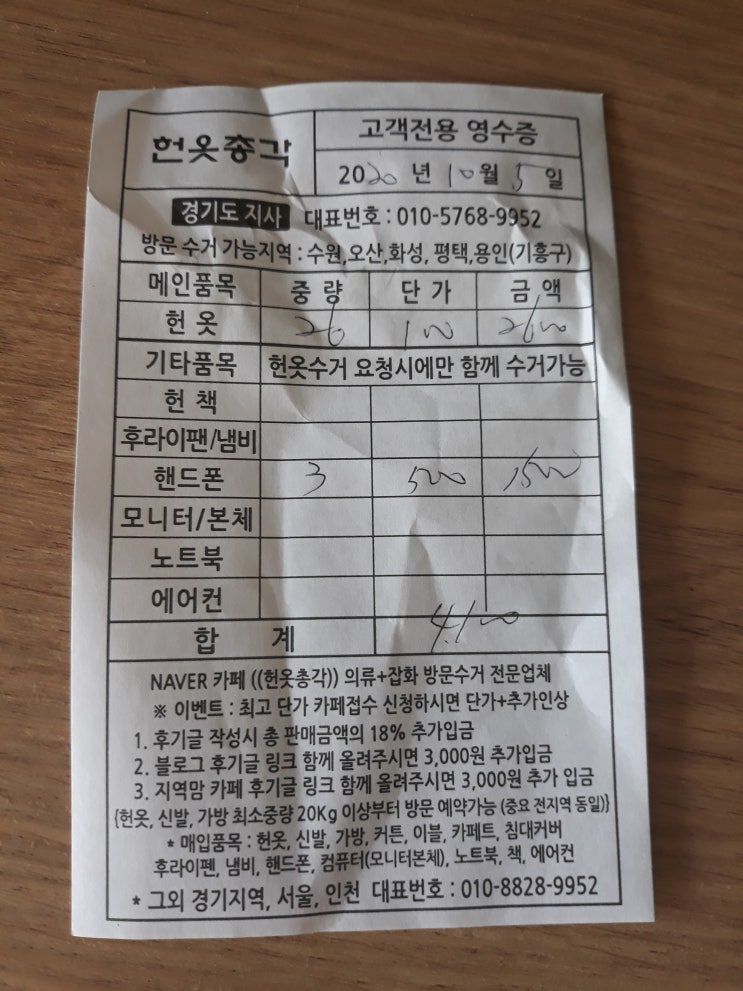 헌옷총각
고객전용 영수증
2020 년 10 월 5 일
경기도 지사 대표번호 : 010-5768-9952
방문 수거 가능지역 : 수원,오산,화성, 평택,용인(기흥구)
메인품목 중 량 단 가 금 액
헌 옷 26 100 2600
기타품목 헌옷수거 요청시에만 함께 수거가능
헌 책
후라이팬/냄비
핸드폰 3 500 1500
모니터/본체
노트북
에어컨
합 계 4.100
NAVER 카페 ((헌옷총각)) 의류+잡화 방문수거 전문업체
※ 이벤트 : 최고 단가 카페접수 신청하시면 단가+추가인상
1. 후기글 작성시 총 판매금액의 18% 추가입금
2. 블로그 후기글 링크 함께 올려주시면 3,000원 추가입금
3. 지역맘 카페 후기글 링크 함께 올려주시면 3,000원 추가 입금
{헌옷, 신발, 가방 최소중량 20Kg 이상부터 방문 예약가능 (중요 전지역 동일)}
* 매입품목 : 헌옷, 신발, 가방, 커튼, 이블, 카페트, 침대커버
후라이펜, 냄비, 핸드폰, 컴퓨터(모니터본체), 노트북, 책, 에어컨
* 그외 경기지역, 서울, 인천 대표번호 : 010-8828-9952